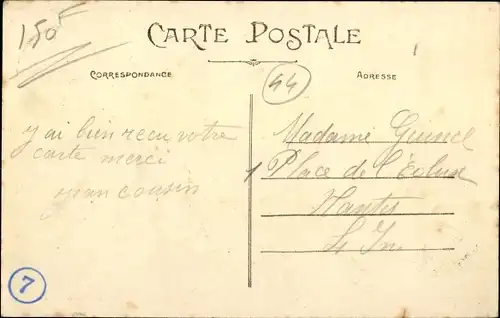 150F
CARTE POSTALE
CORRESPONDANCE
ADRESSE
44
j'ai bien recu votre
carte merci
cousin
Madame
1 Place de l'Écluse
Nantes
7